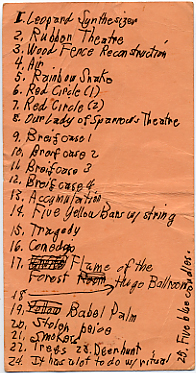 1. Leopard Synthesizer
2. Rubben Theatre
3. Wood Fence Reconstruction
4. Air
5. Rainbow Snake
6. Red Circle (1)
7. Red Circle (2)
8. Our Lady of Sparrows Theatre
9. Breifcase 1
10. Breifcase 2
11. Breifcase 3
12. Breifcase 4
13. Accumulation
14. Five Yellow Bars w/ string
15. Tragedy
16. Comedy
17. Flame of the
Forest Hugo Ballroom
18
19. Babel Palm
20. Stolen peice
21. Smokers
22. Trees 23. Deer hunt
24. It has a lot to do w/ ritual
28. Five blue candles.